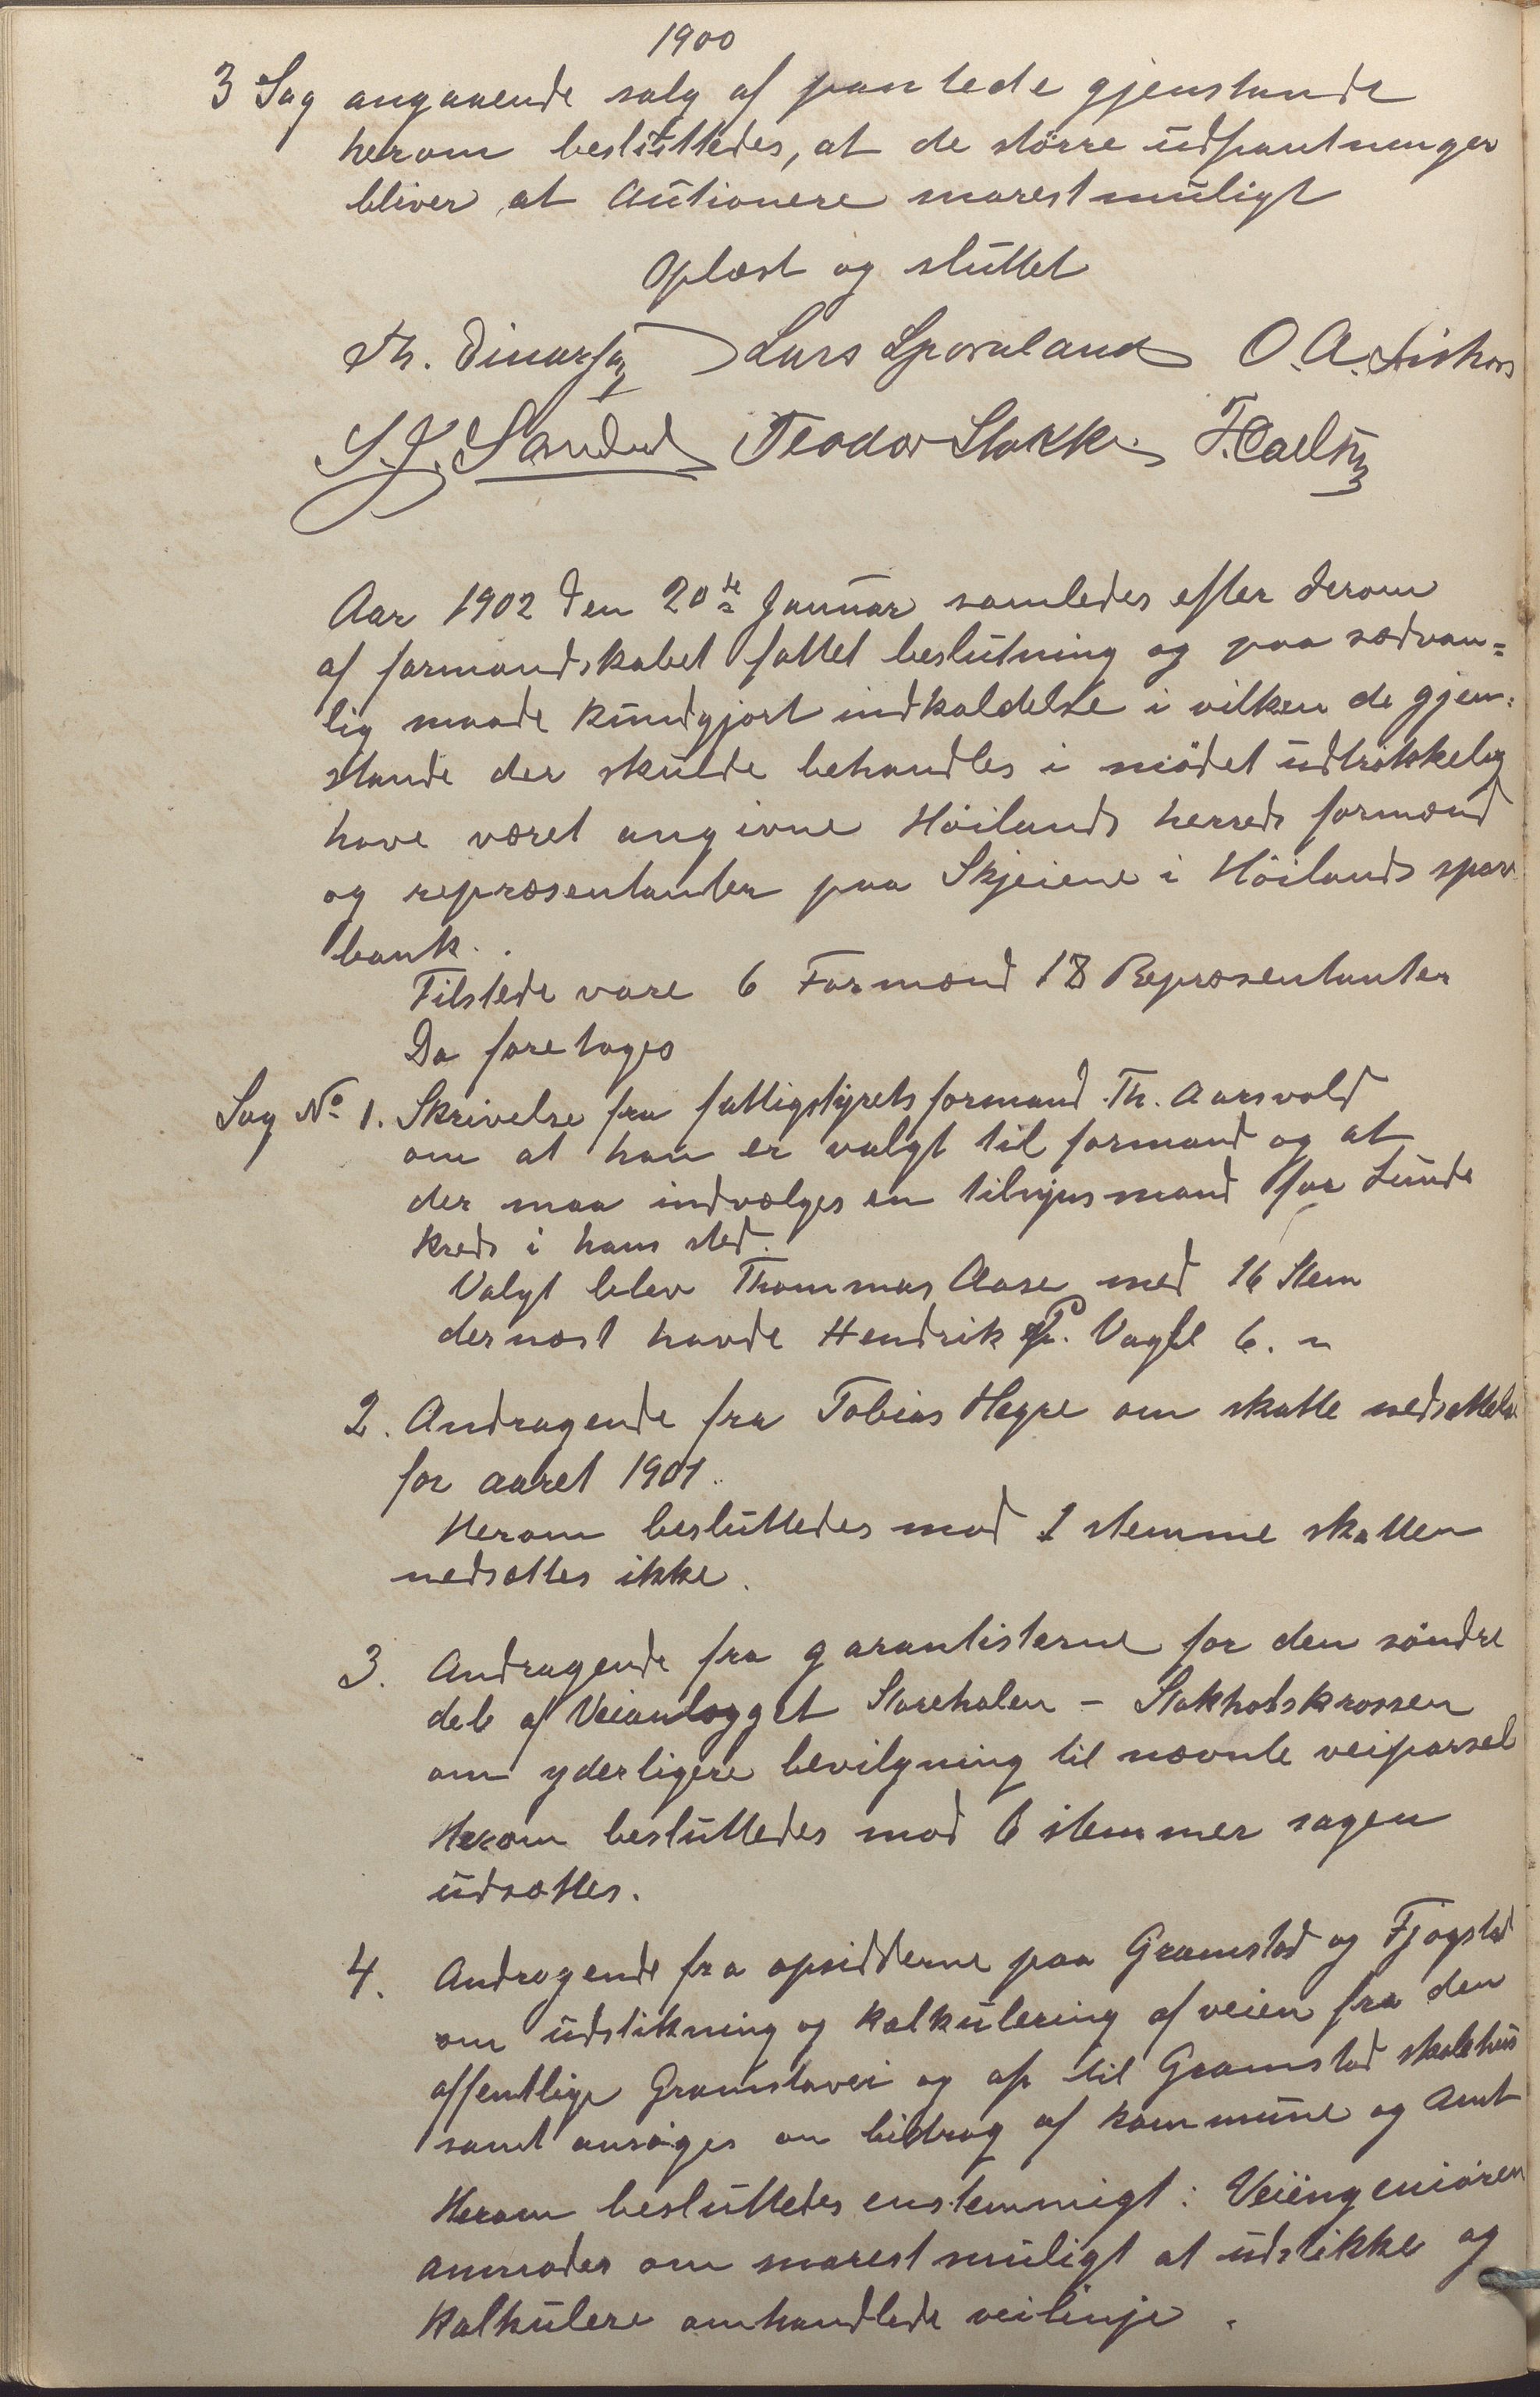 1900
3 Sag angaaende salg af pantede gjenstande
herom besluttedes, at de större udpantninger
bliver at Autionere snarest muligt
Oplæst og sluttet
Th. Lars Sporaland O. A.
S. J. Teodor Stokke
Aar 1902 den 20de Januar samledes efter derom
af formandskabet fattet beslutning og paa sædvan=
lig maade kundgjort indkaldelse i vilken de gjen=
stande der skulde behandles i mödet udtrökkelig
have været angivne Höilands herreds formænd
og repræsentanter paa Skjeiene i Höilands spare
bank.
Tilstede vare 6 Formænd 18 Repræsentanter
Da foretoges
Sag No 1. Skrivelse fra fattigstyrets formand Th. Aarsvold
om at han er valgt til formand og at
der maa indvælges en tilsynsmand for Lunde
kreds i hans sted.
Valgt blev Thommas Aase med 16 Stem
dernæst havde Hendrik P. Vagle 6. "
2. Andragende fra Tobias Hegre om skatte nedsættelse
for aaret 1901.
Herom besluttedes mod 1 stemme skatten
nedsættes ikke.
3. Andragende fra garantisterne for den söndre
del af Veianlægget Storehalen - Stokholskrossen
om yderligere bevilgning til nævnte veiparsel
Herom besluttedes mod 6 stemmer sagen
udsættes.
4. Andragende fra opsidderne paa Gramstad og Fjogstad
om udstikning og kalkulering af veien fra den
offentlige Gramstavei og op til Gramstad skolehus
samt ansöges om bidrag af kommune og Amt
Herom besluttedes enstemmigt: Veiingeniören
anmodes om snarest muligt at udstikke og
Kalkulere omhandlede veilinje.